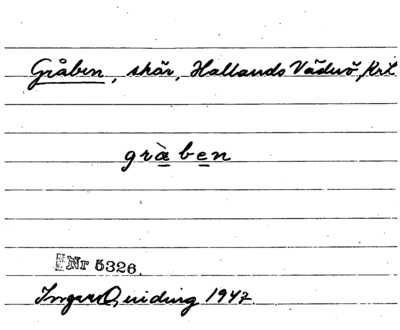 Gråben, skär, Hallands Väderö, Krl
gràben
Nr 5326.
Ingvar Quiding 1947.